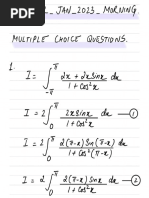 JAN_2023_MORNING
MULTIPLE CHOICE QUESTIONS.
1.
I = ∫₀^π (2x + 2x sin x)/(1 + cos²x) dx
I = 2∫₀^π (2x sin x)/(1 + cos²x) dx —①
I = 2∫₀^π (2(π-x) Sin(π-x))/(1 + cos²(π-x)) dx
I = 2∫₀^π (2(π-x) Sin x)/(1 + cos²x) dx —②